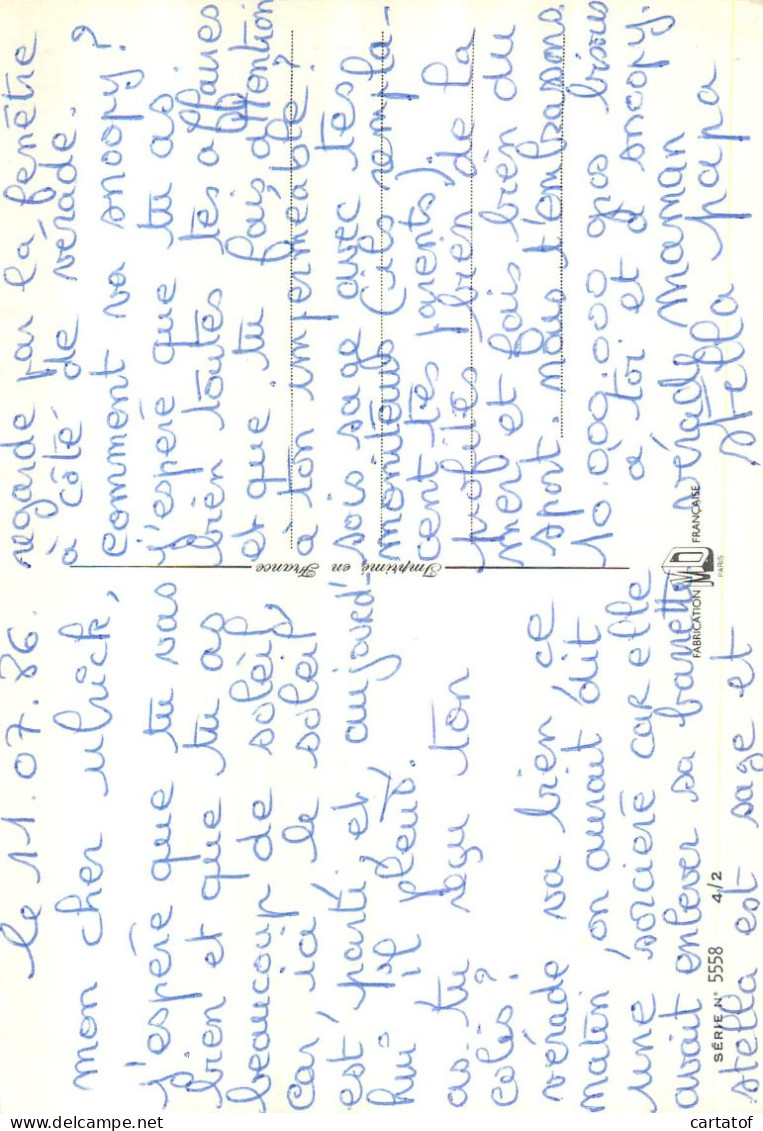 le 11.07.86.
mon cher ulrick,
J'espère que tu vas
bien et que tu as
beaucoup de soleil,
car ici le soleil
est parti et aujourd'-
hui il pleut.
as-tu reçu ton
colis?
vérade va bien ce
matin, on aurait dit
une sorcière car elle
avait enlever sa barrette
stella est sage et
regarde par la fenêtre
à côté de vérade.
comment va snoopy?
j'espère que tu as
bien toutes tes affaires
et que tu fais attention
à ton imperméable?
sois sage avec tes
moniteurs (ils rempla-
cent tes parents).
profites bien de la
mer et fais bien du
sport. nous t'embrassons
10.000.000 gros bisous
a toi et a snoopy.
vérade maman
stella papa
Imprimé en France
FABRICATION MD FRANÇAISE
PARIS
SÉRIE N° 5558 4/2
cartatof